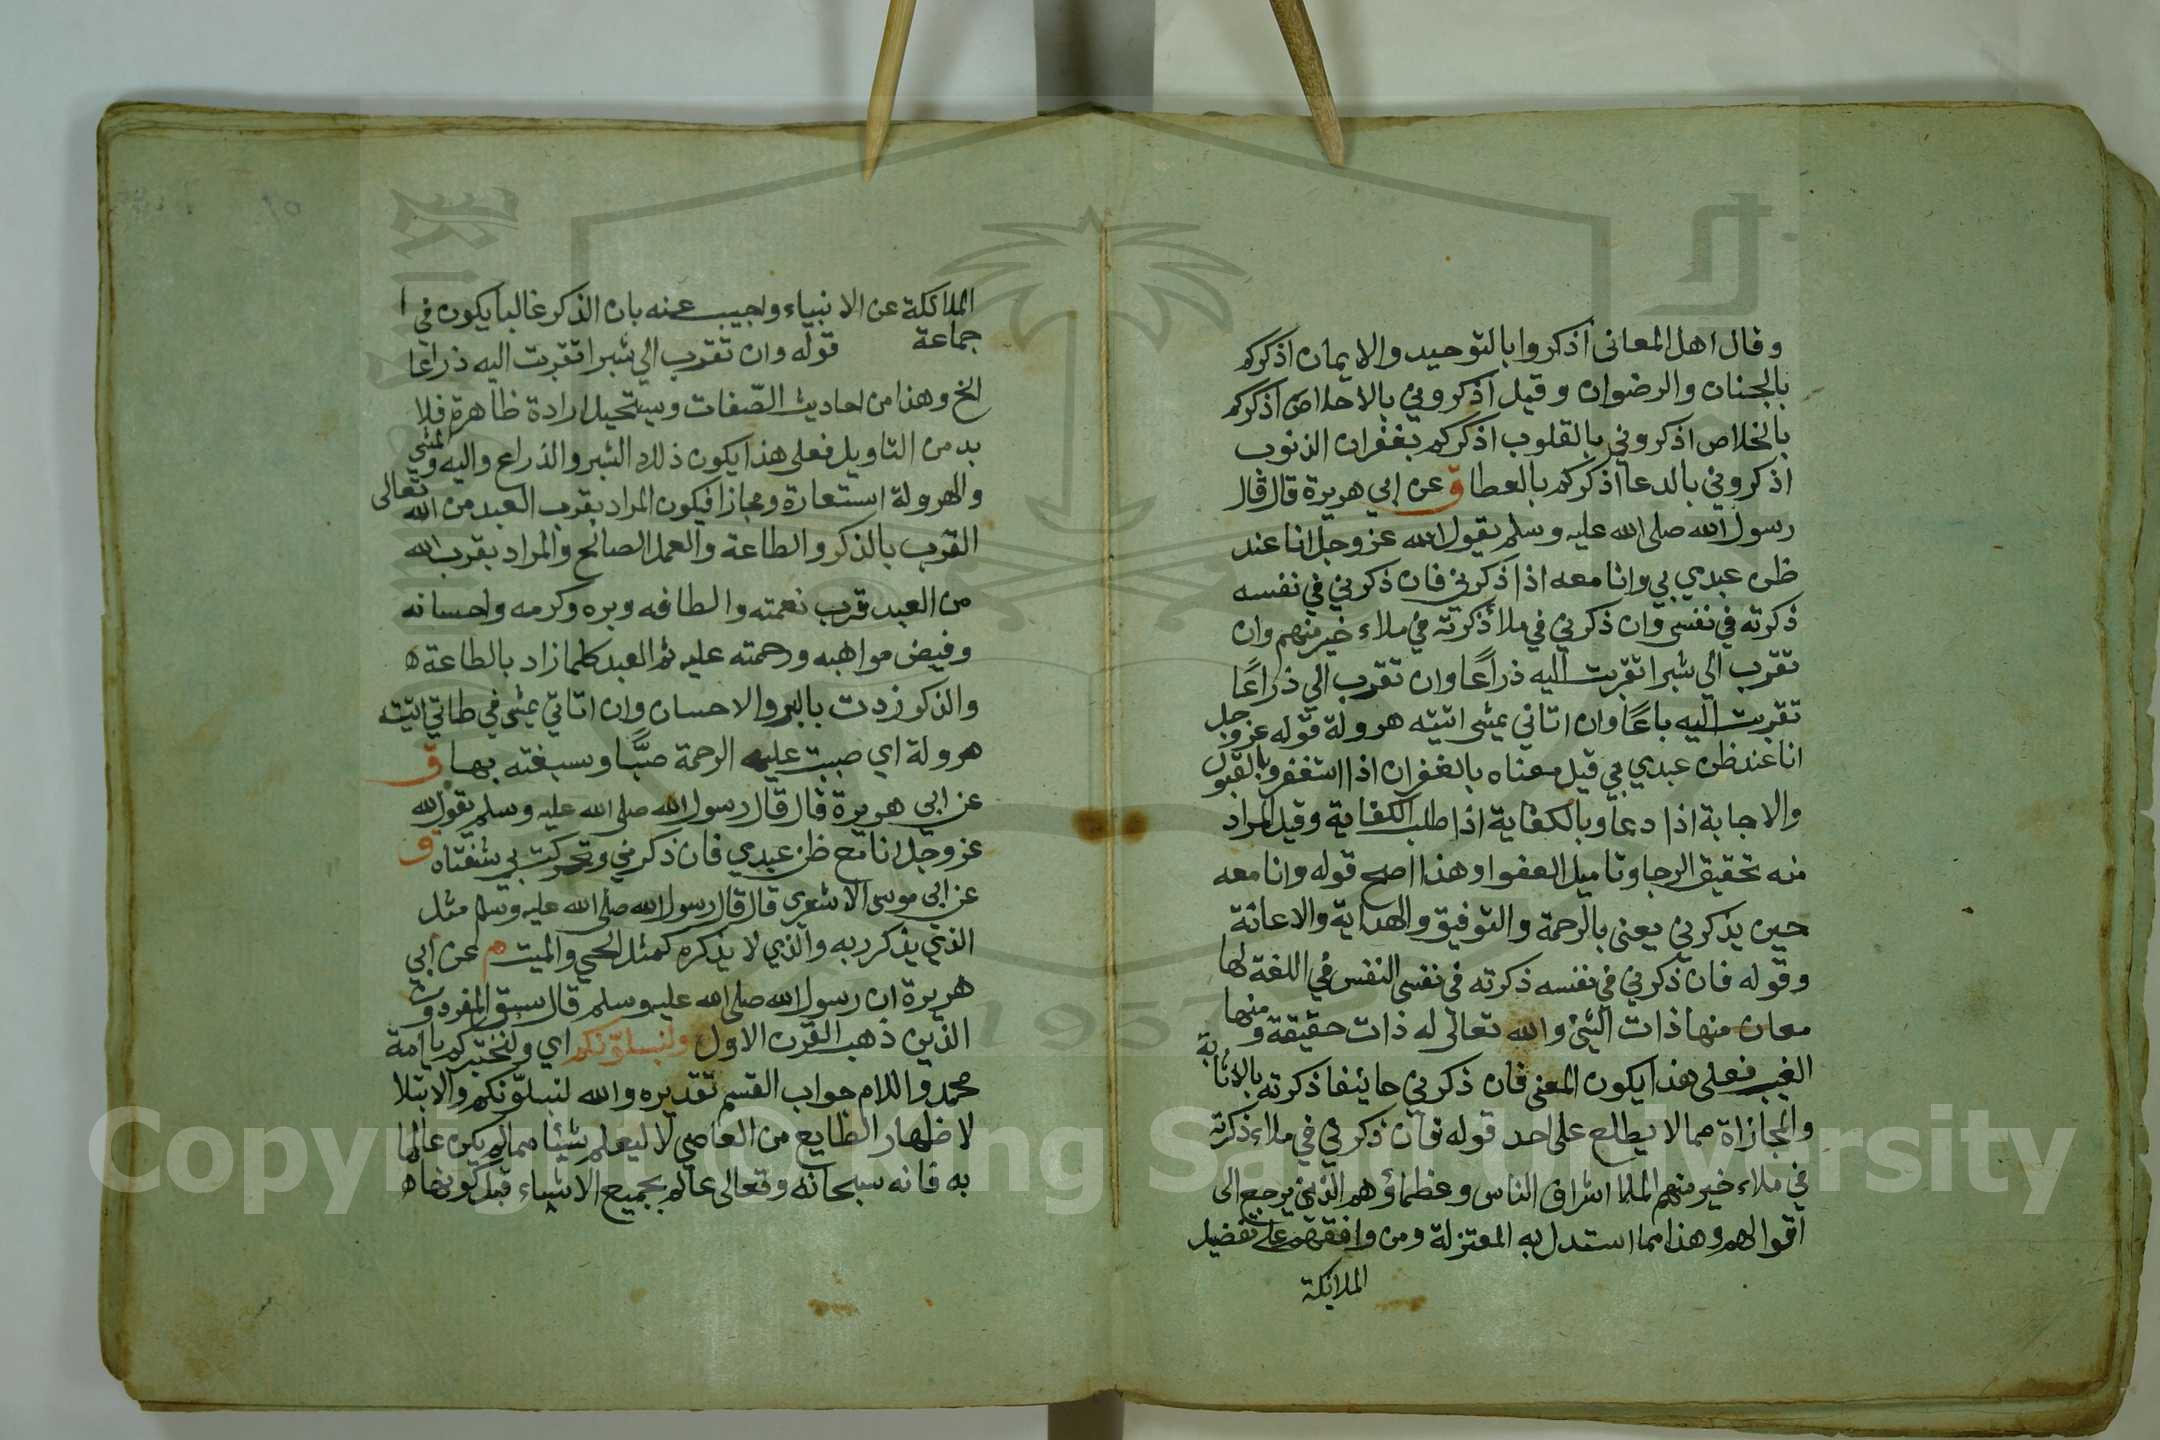 وقال اهل المعانى اذكروا بالتوحيد والايمان اذكركم
بالجنان والرضوان وقيل اذكروني بالاخلاص اذكركم
بالخلاص اذكروني بالقلوب اذكركم بغفران الذنوب
اذكروني بالدعا اذكركم بالعطا ق عن ابي هريرة قال قال
رسول الله صلى الله عليه وسلم يقول الله عز وجل انا عند
ظن عبدي بي وانا معه اذا ذكرني فان ذكرني في نفسه
ذكرته في نفسى وان ذكرني في ملا ذكرته في ملاء خير منهم وان
تقرب الي شبرا تقربت اليه ذراعًا وان تقرب الي ذراعًا
تقربت اليه باعًا وان اتاني يمشى اتيته هرولة قوله عز وجل
انا عند ظن عبدي بي قيل معناه بالغفران اذا استغفر وبالقبول
والاجابة اذا دعا وبالكفاية اذا طلب الكفاية وقيل المراد
منه تحقيق الرجا وتاميل العفو وهذا اصح قوله وانا معه
حين يذكرني يعنى بالرحمة والتوفيق والهداية والاعانة
وقوله فان ذكرني في نفسه ذكرته في نفسى النفس في اللغة لها
معان منها ذات الشئ والله تعالى له ذات حقيقة ومنها
الغيب فعلى هذا يكون المعنى فان ذكرني خائيفا ذكرته بالاثابة
والمجازاة مما لا يطلع على احد قوله فان ذكرني في ملاء ذكرته
في ملاء خير منهم الملا اشراف الناس وعظماؤهم الذين يرجع الى
اقوالهم وهذا مما استدل به المعتزلة ومن وافقهم على تفضيل
الملائكة
الملائكة عن الانبياء واجيب عنه بان الذكر غالبا يكون في
جماعة قوله وان تقرب الي شبرا تقربت اليه ذراعا
الخ وهذا من احاديث الصّفات ويستحيل ارادة ظاهرة فلا
بد من التاويل فعلى هذا يكون ذلك الشبر والذراع واليه والمشي
والهرولة استعارة ومجازا فيكون المراد بقرب العبد من الله تعالى
القرب بالذكر والطاعة والعمل الصالح والمراد بقرب الله
من العبد قرب نعمته والطافه وبره وكرمه واحسانه
وفيض مواهبه ورحمته عليه ثم العبد كلما زاد بالطاعة ه
والذكر زدت بالبر والاحسان وان اتاني يمشى في طاتي اتيته
هرولة اي صببت عليه الرحمة صبًّا وسبغته بها ق
عن ابي هريرة قال قال رسول الله صلى الله عليه وسلم يقول الله
عز وجل انا مع ظن عبدي فان ذكرني وتحركت بي شفتاه ق
عن ابي موسى الاشعري قال قال رسول الله صلى الله عليه وسلم مثل
الذي يذكر ربه والذي لا يذكره كمثل الحي والميت م عن ابي
هريرة ان رسول الله صلى الله عليه وسلم قال سبق المفردون
الذين ذهب القرن الاول ولنبلوّنكم اي ولنختبركم يا امة
محمد واللام جواب القسم تقديره والله لنبلوّنكم والابتلا
لاظهار الطايع من العاصي لا ليعلم شيئا مما لم يكن عالما
به فانه سبحانه وتعالى عالم بجميع الاشياء قبل كونها ه
Copyright © King Saud University
1957